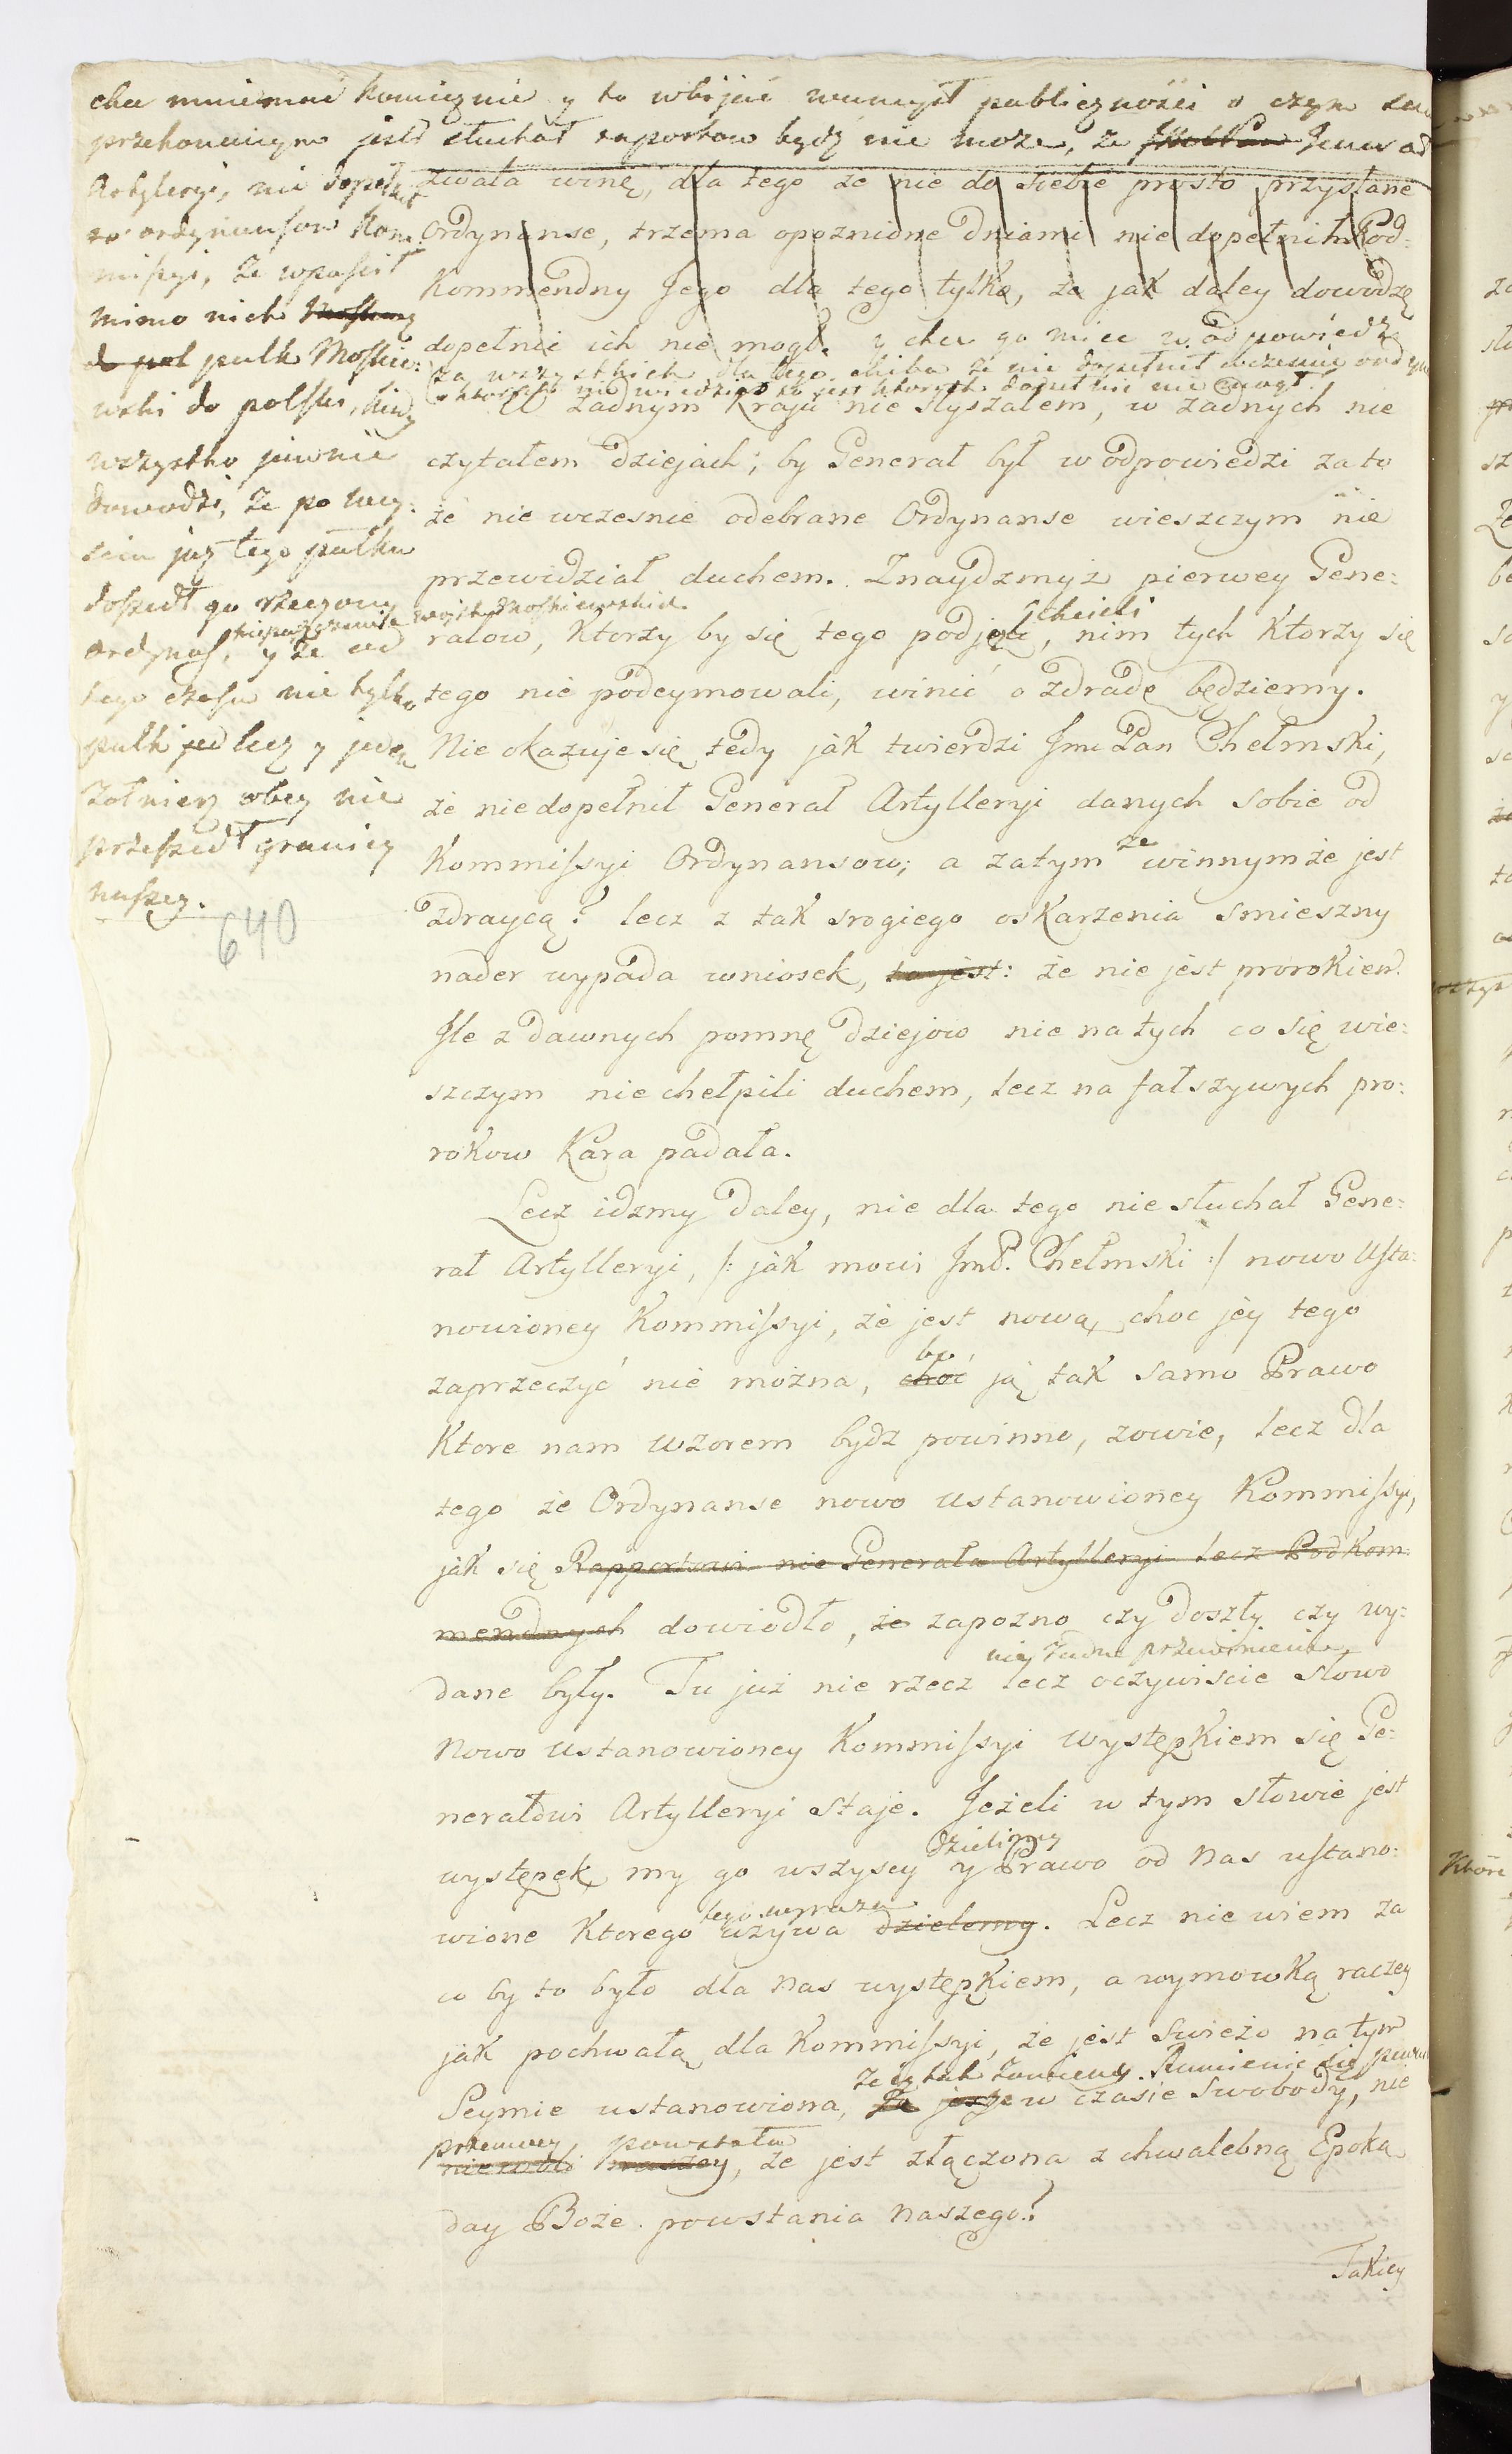 chce mniemać koniecznie y to wbijać w umysł publiczności o czym
przekonanym jeśli słuchał raportow bydź nie może, że
Artyleryi, nie dopełnił
to ordynansow Kom:
mißyi, że wpuścił
mimo nich Moskwę
do pol pułk Moskie:
wski do polski, kiedy
wszystko jawnie
dowodzi, że po wey:
sciu już tego pułku
doszedł go rzeczony
ordynas, y że od
wojsk Moskiewskich
tego czasu nie tylko
pułk jed lecz y jeden
żołnierz obcy nie
przeszedł granicy
naszey.
640
zwała winę, dla tego że nie do siebie prosto przysłane
Ordynanse, trzema opoznione Dniami nie dopełnił Pod:
Kommendny Jego dla tego tylko, że jak daley dowodzę
dopełnić ich nie mogł. y chce go miec w odpowiedzi
za wszystkich dla tego chiba że nie dopełnił wczesnie
o ktorych nie wiedział to jest ktorych dopełnic nie mogł.
W żadnym Kraju nie słyszałem, w żadnych nie
czytałem Dziejach; by Generał był w odpowiedzi za to
że nie wczesnie odebrane Ordynanse wieszczym nie
przewidział duchem. Znaydzmyż pierwey Gene:
chcieli
rałow, Ktorzy by się tego podjęli, nim tych Ktorzy się
tego nie podeymowali, winić o zdradę będziemy.
Nie okazuje się tedy jak twierdzi Jmc Pan Chełmski,
że niedopełnił Generał Artylleryi danych sobie od
że
Kommißyi Ordynansow; a zatym winnym że jest
zdraycą? lecz z tak srogiego oskarzenia smieszny
nader wypada wniosek, to jest: że nie jest prorokiem.
Ile z dawnych pomnę Dziejow nie na tych co się wie:
szczym nie chełpili duchem, lecz na fałszywych pro:
rokow Kara padała.
Lecz idzmy Daley, nie dla tego nie słuchał Gene:
rał Artylleryi, /: jak mowi JmP. Chełmski :/ nowo Usta:
nowioney Kommißyi, że jest nową, choc jey tego
bo
zaprzeczyć nie można, choć ją tak samo Prawo
Ktore nam wzorem bydz powinno, zowie, lecz dla
tego że Ordynanse nowo ustanowioney Kommißyi,
jak się Rapportowi nie Generała Artylleryi lecz Podkom
mendnych dowiodło, że zapozno czy doszły czy wy:
nie żadne przewinienie
dane były. Tu już nie rzecz lecz oczywiscie słowo
Nowo ustanowioney Kommißyi występkiem się Ge:
nerałowi Artylleryi staje. Jeżeli w tym słowie jest
dzielimy
występek, my go wszyscy y Prawo od nas ustano:
tego wyrazu
wione Ktorego używa dzielemy. Lecz nie wiem za
co by to było dla nas występkiem, a wymowką raczey
jak pochwałą dla Kommißyi, że jest swieżo na tym
że ią tak zowiemy. Rumienić się
Seymie ustanowiona, Ża jeszje w czasie Swobody, nie
przemocy powstała
niewoli naszey, że jest złączona z chwalebną Epoką
day Boże powstania naszego?
Takiey